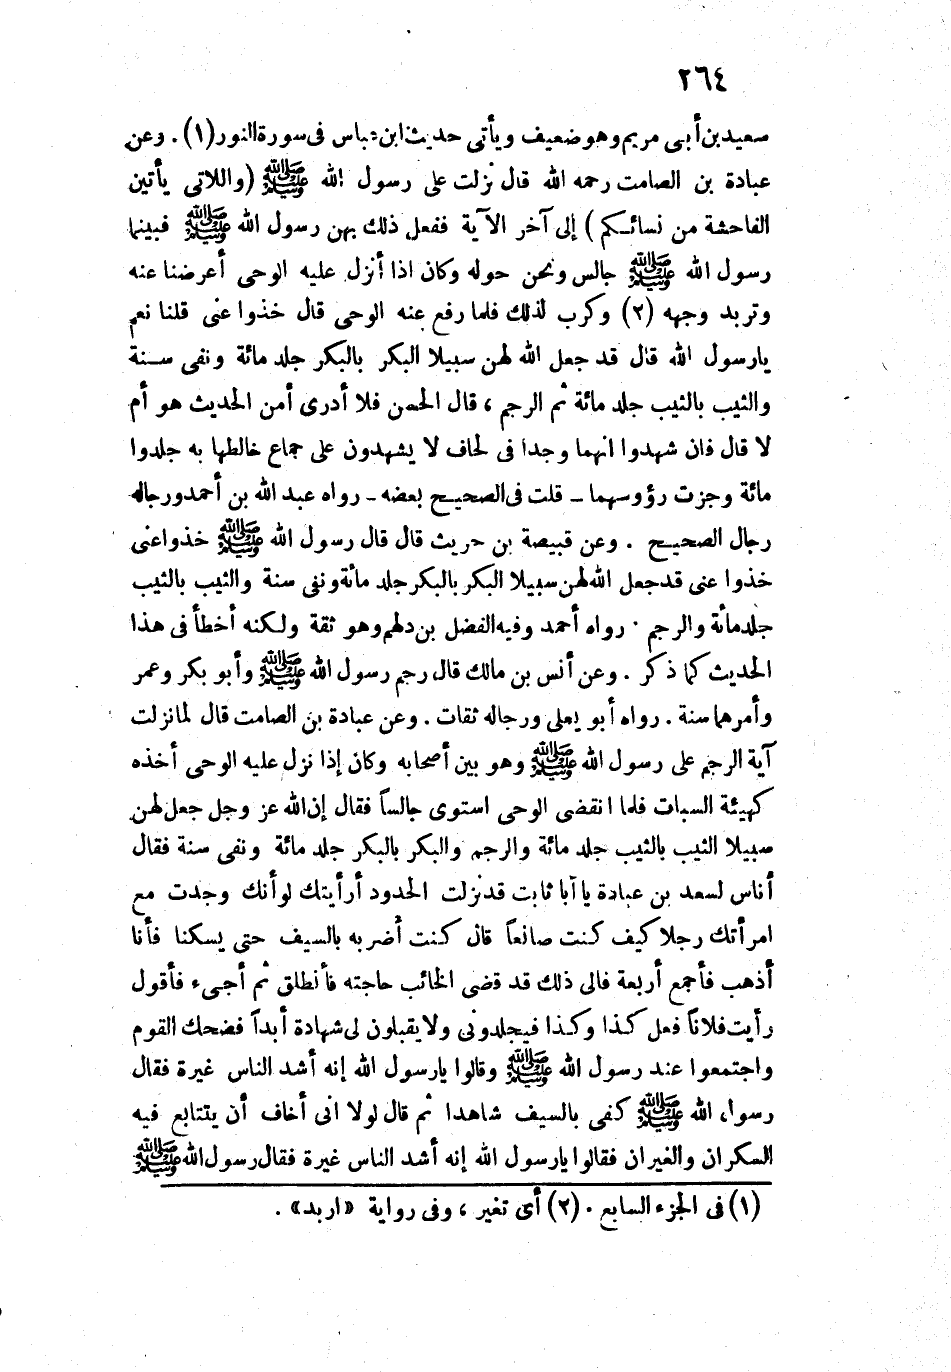 ٢٦٤
سعيد بن أبى مريم وهو ضعيف ويأتى حديث ابن عباس فى سورة النور (١) . وعن
عبادة بن الصامت رحمه الله قال نزلت على رسول الله ﷺ (واللاتى يأتين
الفاحشة من نسائكم ) إلى آخر الآية ففعل ذلك بهن رسول الله ﷺ فبينما
رسول الله ﷺ جالس ونحن حوله وكان اذا أنزل عليه الوحى أعرضنا عنه
وتربد وجهه (٢) وكرب لذلك فلما رفع عنه الوحى قال خذوا عنى قلنا نعم
يارسول الله قال قد جعل الله لهن سبيلا البكر بالبكر جلد مائة ونفى سنة
والثيب بالثيب جلد مائة ثم الرجم ، قال الحسن فلا أدرى أمن الحديث هو أم
لا قال فان شهدوا انهما وجدا فى لحاف لا يشهدون على جماع خالطها به جلدوا
مائة وجزت رؤوسهما ـ قلت فى الصحيح بعضه ـ رواه عبد الله بن أحمد ورجاله
رجال الصحيح . وعن قبيصة بن حريث قال قال رسول الله ﷺ خذوا عنى
خذوا عنى قد جعل الله لهن سبيلا البكر بالبكر جلد مائة ونفى سنة والثيب بالثيب
جلد مائة والرجم . رواه أحمد وفيه الفضل بن دلهم وهو ثقة ولكنه أخطأ فى هذا
الحديث كما ذكر . وعن أنس بن مالك قال رجم رسول الله ﷺ وأبو بكر وعمر
وأمرهما سنة . رواه أبو يعلى ورجاله ثقات . وعن عبادة بن الصامت قال لما نزلت
آية الرجم على رسول الله ﷺ وهو بين أصحابه وكان إذا نزل عليه الوحى أخذه
كهيئة السبات فلما انقضى الوحى استوى جالساً فقال إن الله عز وجل جعل لهن
سبيلا الثيب بالثيب جلد مائة والرجم والبكر بالبكر جلد مائة ونفى سنة فقال
أناس لسعد بن عبادة يا أبا ثابت قد نزلت الحدود أرأيتك لو أنك وجدت مع
امرأتك رجلا كيف كنت صانعاً قال كنت أضربه بالسيف حتى يسكنا فأنا
أذهب فأجمع أربعة فالى ذلك قد قضى الخائب حاجته فأنطلق ثم أجىء فأقول
رأيت فلاناً فعل كذا وكذا فيجلدونى ولا يقبلون لى شهادة أبداً فضحك القوم
واجتمعوا عند رسول الله ﷺ وقالوا يارسول الله إنه أشد الناس غيرة فقال
رسول الله ﷺ كفى بالسيف شاهدا ثم قال لولا انى أخاف أن يتتابع فيه
السكران والغيران فقالوا يارسول الله إنه أشد الناس غيرة فقال رسول الله ﷺ
(١) فى الجزء السابع . (٢) أى تغير ، وفى رواية «اربد» .